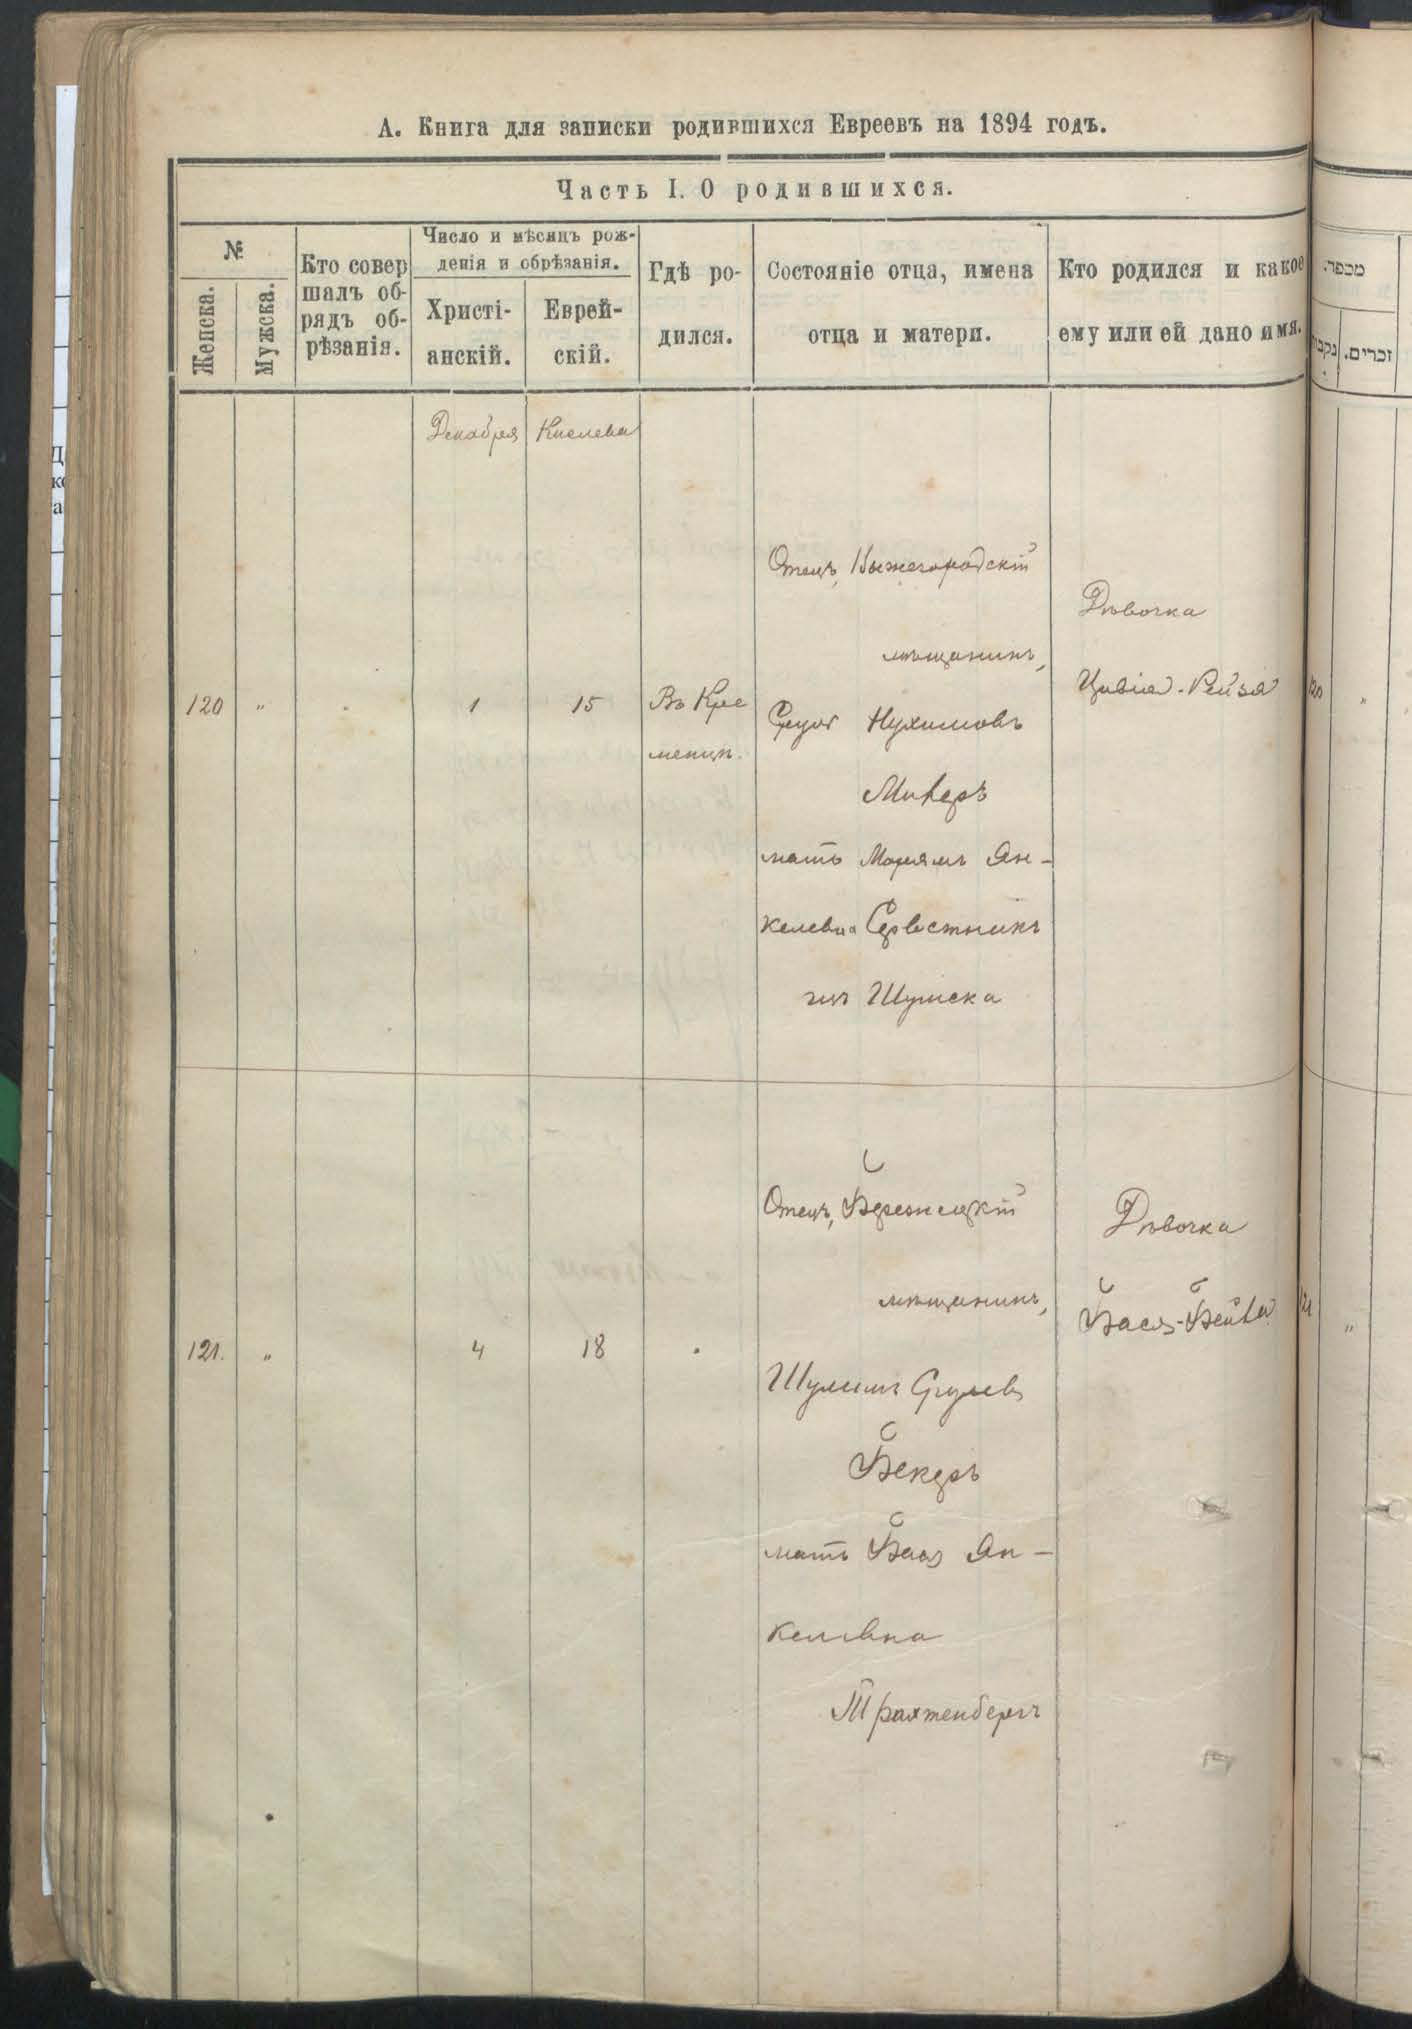 А. Книга для записки родившихся Евреевъ на 1894 годъ.
Часть I. О родившихся.
№
Женска.
Мужска.
Кто совер
шалъ об-
рядъ об-
рѣзанія.
Число и мѣсяцъ рож-
денія и обрѣзанія.
Христі-
анскій.
Еврей-
скій.
Гдѣ ро-
дился.
Состояніе отца, имена
отца и матери.
Кто родился и какое
ему или ей дано имя.
מכפר.
זכרים.
Декабря
Кислева
120
"
1
15
Въ Кре
менцѣ.
Отецъ, Вышегородскій
мѣщанинъ,
Нухимовъ
мать Марьямъ Ян-
келевна
изъ Шумска
Дѣвочка
Цивія-Рейзя
120
"
121.
"
4
18
Отецъ, Бережецкій
мѣщанинъ,
Шулимъ Срулев
Бекеръ
мать Бася Ян-
келевна
Трахтенбергъ
Дѣвочка
Бася-Бейла
121
"